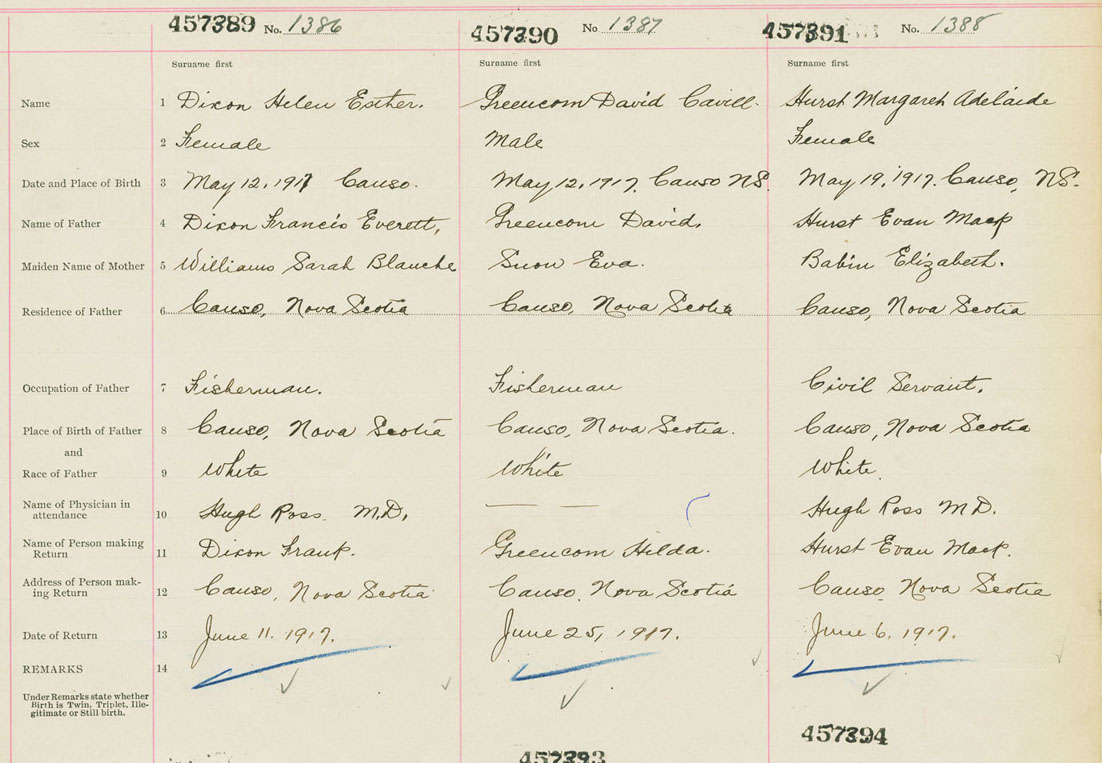 457389 No. 1386 457390 No 1387 457391 No. 1388
Surname first Surname first Surname first
Name 1 Dixon Helen Esther. Greencorn David Cavill. Hurst Margaret Adelaide
Sex 2 Female Male Female
Date and Place of Birth 3 May 12, 1917 Canso. May 12, 1917, Canso NS. May 19, 1917. Canso, NS.
Name of Father 4 Dixon Francis Everett, Greencorn David, Hurst Evan Mack
Maiden Name of Mother 5 Williams Sarah Blanche Snow Eva. Babin Elizabeth.
Residence of Father 6 Canso, Nova Scotia Canso, Nova Scotia Canso, Nova Scotia
Occupation of Father 7 Fisherman. Fisherman Civil Servant.
Place of Birth of Father 8 Canso, Nova Scotia Canso, Nova Scotia. Canso, Nova Scotia
and
Race of Father 9 White White White
Name of Physician in
attendance 10 Hugh Ross M.D. — — Hugh Ross M.D.
Name of Person making
Return 11 Dixon Frank. Greencorn Hilda. Hurst Evan Mack.
Address of Person mak-
ing Return 12 Canso, Nova Scotia Canso, Nova Scotia Canso, Nova Scotia
Date of Return 13 June 11. 1917. June 25, 1917. June 6. 1917.
REMARKS 14
Under Remarks state whether
Birth is Twin, Triplet, Ille-
gitimate or Still-birth.
457393 457394